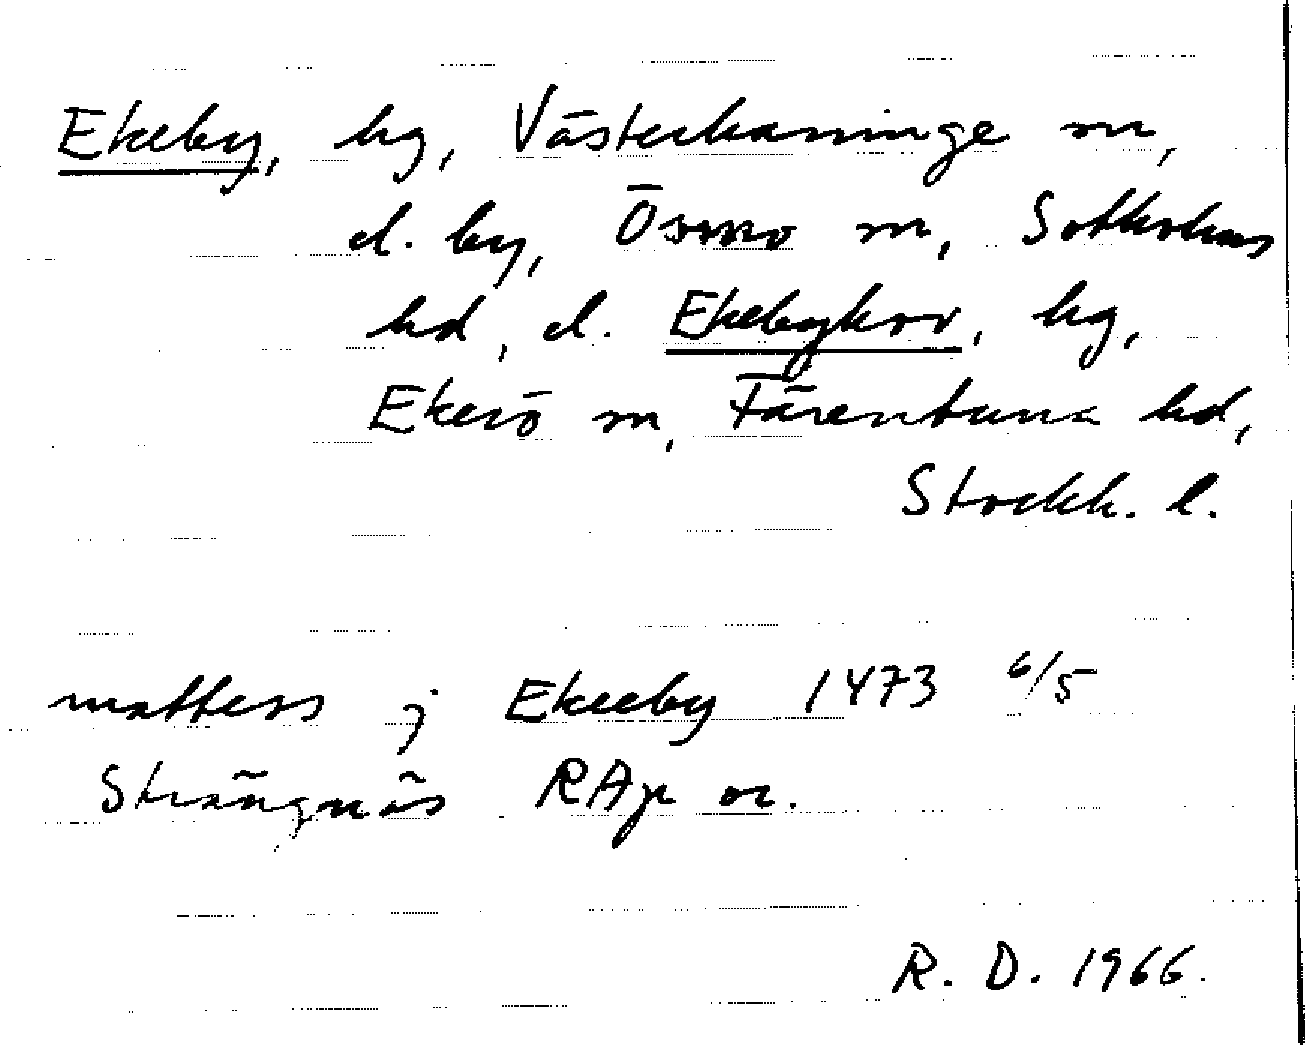 Ekeby, hg, Västerhaninge sn,
el. by, Ösmo sn, Sotholms
hd, el. Ekebyhov, hg,
Ekerö sn, Färentuna hd,
Stockh. l.
mattess j Ekeeby 1473 6/5
Strängnäs RAp or.
R. D. 1966.